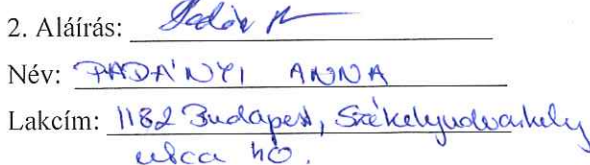 2. Aláírás:
Név: PADÁNYI ANNA
Lakcím: 1182 Budapest, Székelyudvarhely
utca 40.